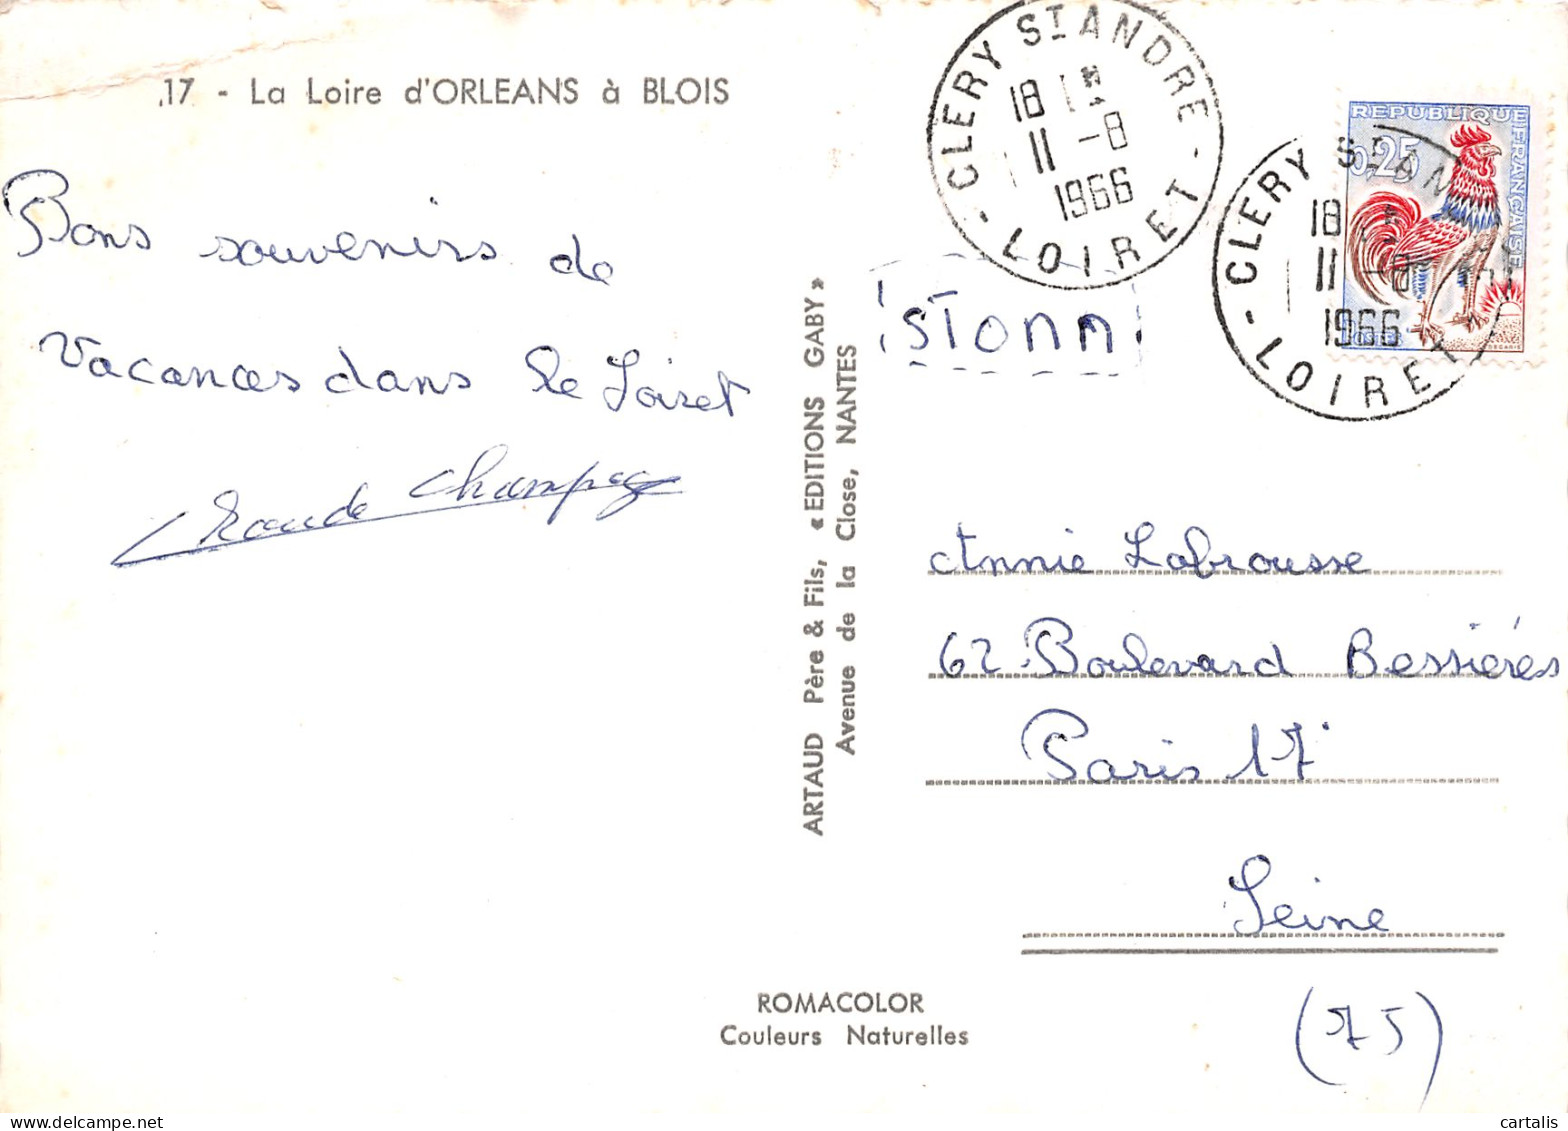 17 - La Loire d'ORLEANS à BLOIS
Bons souvenirs de
vacances dans le Loiret
ARTAUD Père & Fils, « EDITIONS GABY »
Avenue de la Close, NANTES
CLERY ST ANDRE
18
11 -8
1966
- LOIRET -
ISTORA
REPUBLIQUE FRANÇAISE
0,25
CLERY ST AN
18
11 -8
1966
- LOIRET
Annie Labrousse
62 Boulevard Bessières
Paris 17
Seine
(75)
ROMACOLOR
Couleurs Naturelles
cartalis